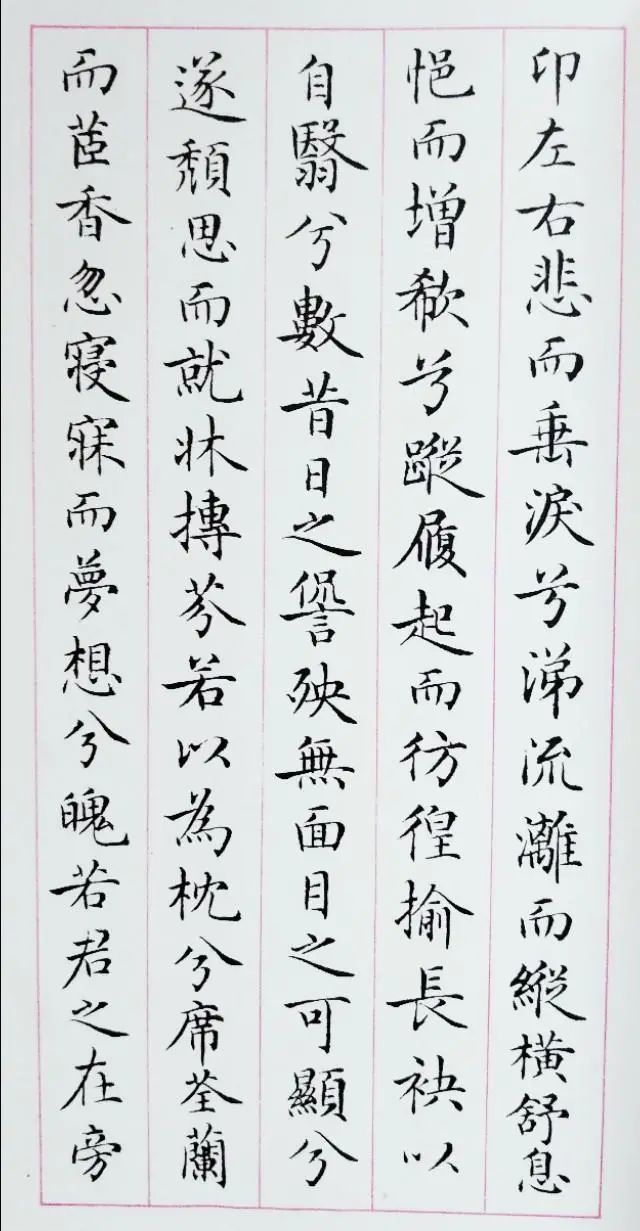 卬左右悲而垂淚兮涕流漓而縱橫舒息
悒而增欷兮蹝履起而彷徨揄長袂以
自翳兮數昔日之諐殃無面目之可顯兮
遂頹思而就牀摶芬若以為枕兮席荃蘭
而茝香忽寢寐而夢想兮魄若君之在旁